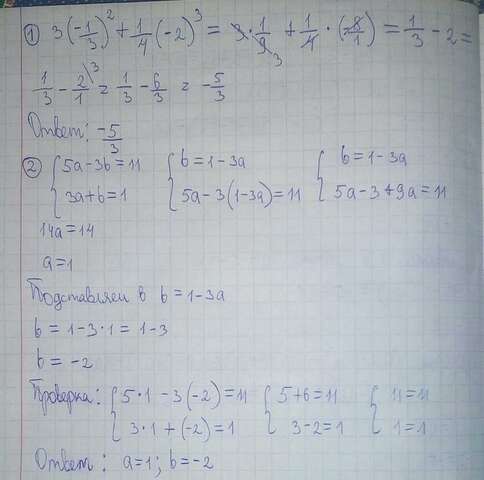 ① 3(-1/3)² + 1/4(-2)³ = 3·1/9 3 + 1/4·(-8/1) = 1/3 - 2 =
1/3 - 2/1 \3 = 1/3 - 6/3 = -5/3
Ответ: -5/3
② { 5a-3b=11 { b=1-3a { b=1-3a
3a+b=1 5a-3(1-3a)=11 5a-3+9a=11
14a=14
a=1
Подставляем в b=1-3a
b=1-3·1=1-3
b=-2
Проверка: { 5·1-3(-2)=11 { 5+6=11 { 11=11
3·1+(-2)=1 3-2=1 1=1
Ответ: a=1; b=-2